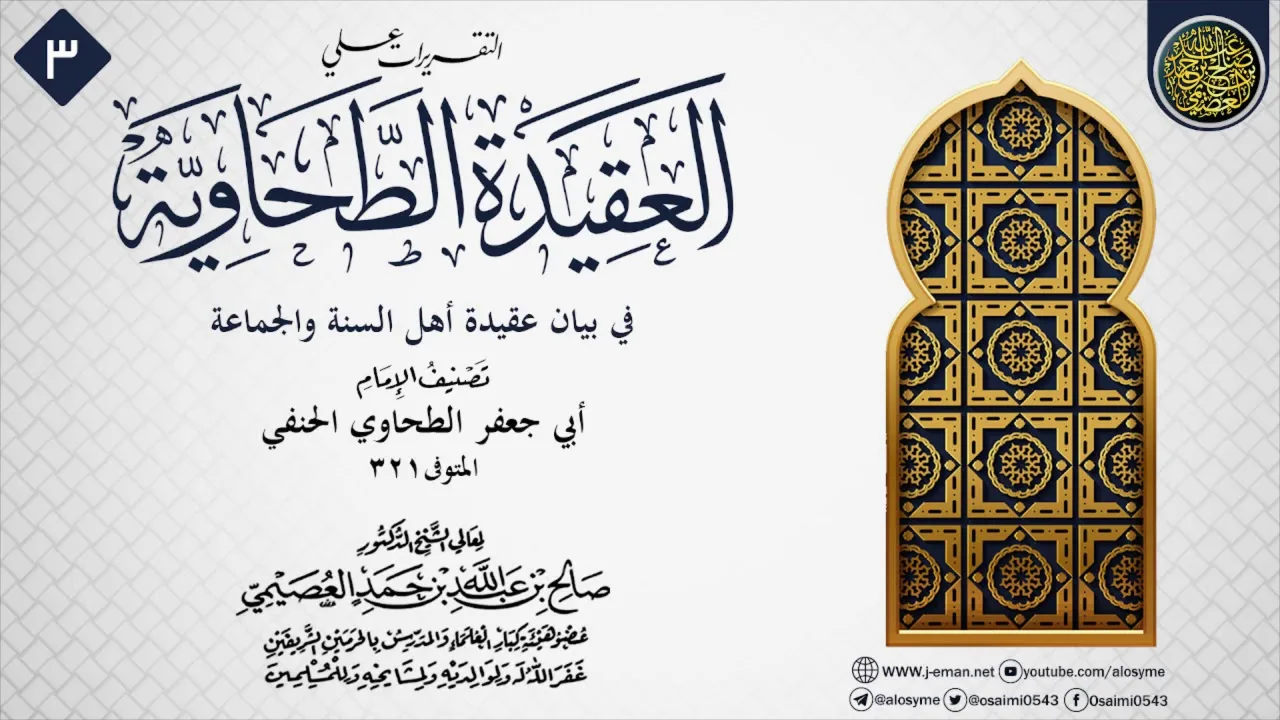 ٣
التقريرات على
العَقِيْدَةُ الطَّحَاوِيَّةُ
في بيان عقيدة أهل السنة والجماعة
تَصْنِيفُ الإِمَامِ
أبي جعفر الطحاوي الحنفي
المتوفى ٣٢١
لِمَعَالِي الشَّيْخِ الدُّكْتُورِ
صَالِحِ بْنِ عَبْدِ اللَّهِ بْنِ حَمَدٍ الْعُصَيْمِيِّ
عُضْوِ هَيْئَةِ كِبَارِ الْعُلَمَاءِ وَالمُدَرِّسِ بِالْحَرَمَيْنِ الشَّرِيفَيْنِ
غَفَرَ اللَّهُ لَهُ وَلِوَالِدَيْهِ وَلِمَشَايِخِهِ وَلِلْمُسْلِمِينَ
صالح بن عبد الله بن حمد العصيمي
WWW.j-eman.net youtube.com/alosyme
@alosyme @osaimi0543 0saimi0543